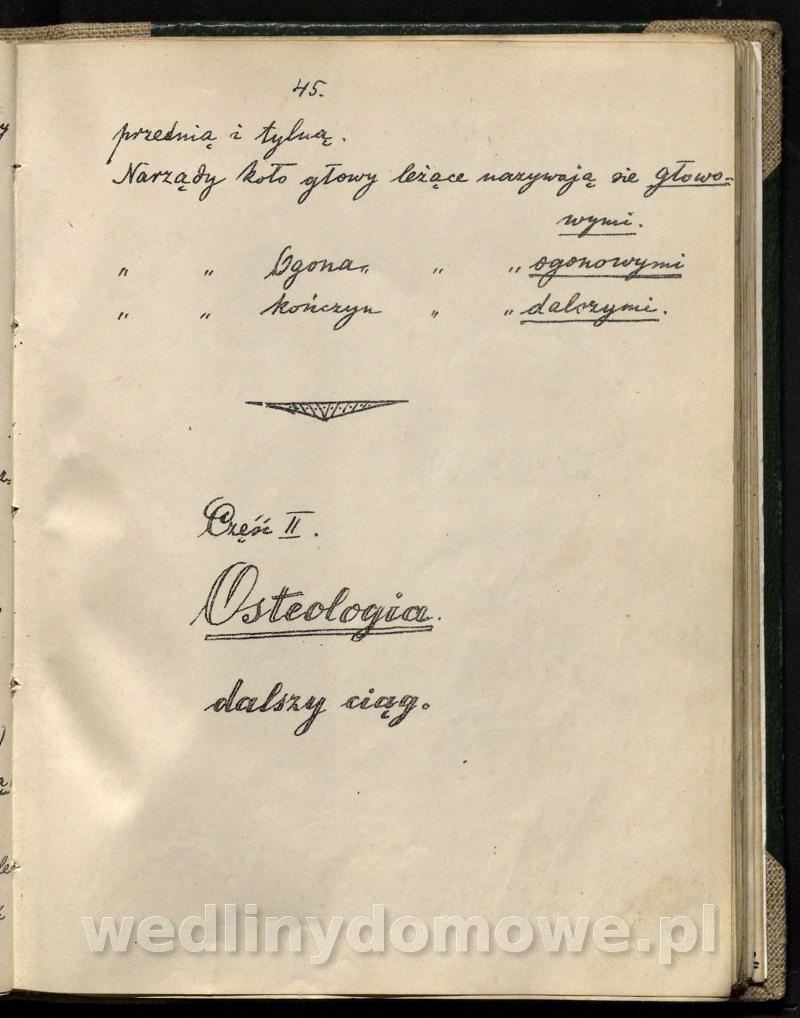 45.
przednią i tylną.
Narządy koło głowy leżące nazywają się głowo-
wymi.
„ „ Ogona „ „ „ ogonowymi
„ „ kończyn „ „ dalszymi.
Część II.
Osteologia.
dalszy ciąg.
wedlinydomowe.pl